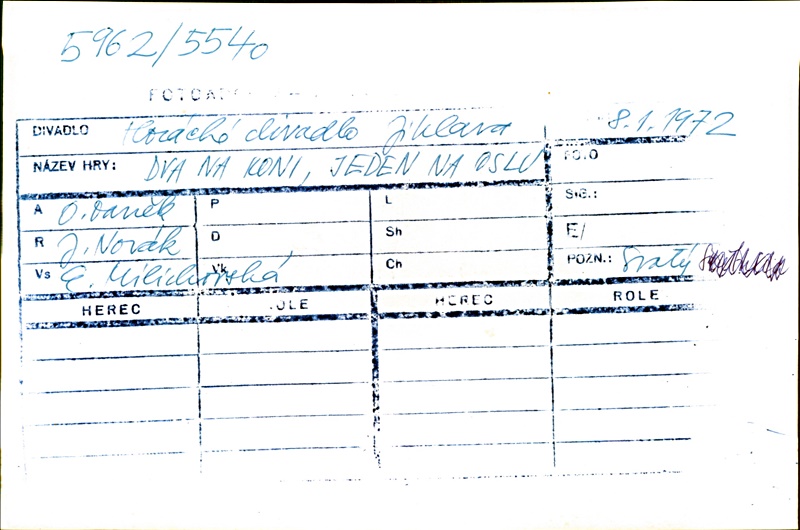 5962/5540
DIVADLO Horácké divadlo Jihlava 8.1.1972
NÁZEV HRY: DVA NA KONI, JEDEN NA OSLU
A O. Daněk P L SIG.:
R J. Novák D Sh E/
Vs E. Milichovská Vk Ch POZN.: Svatý
HEREC ROLE HEREC ROLE